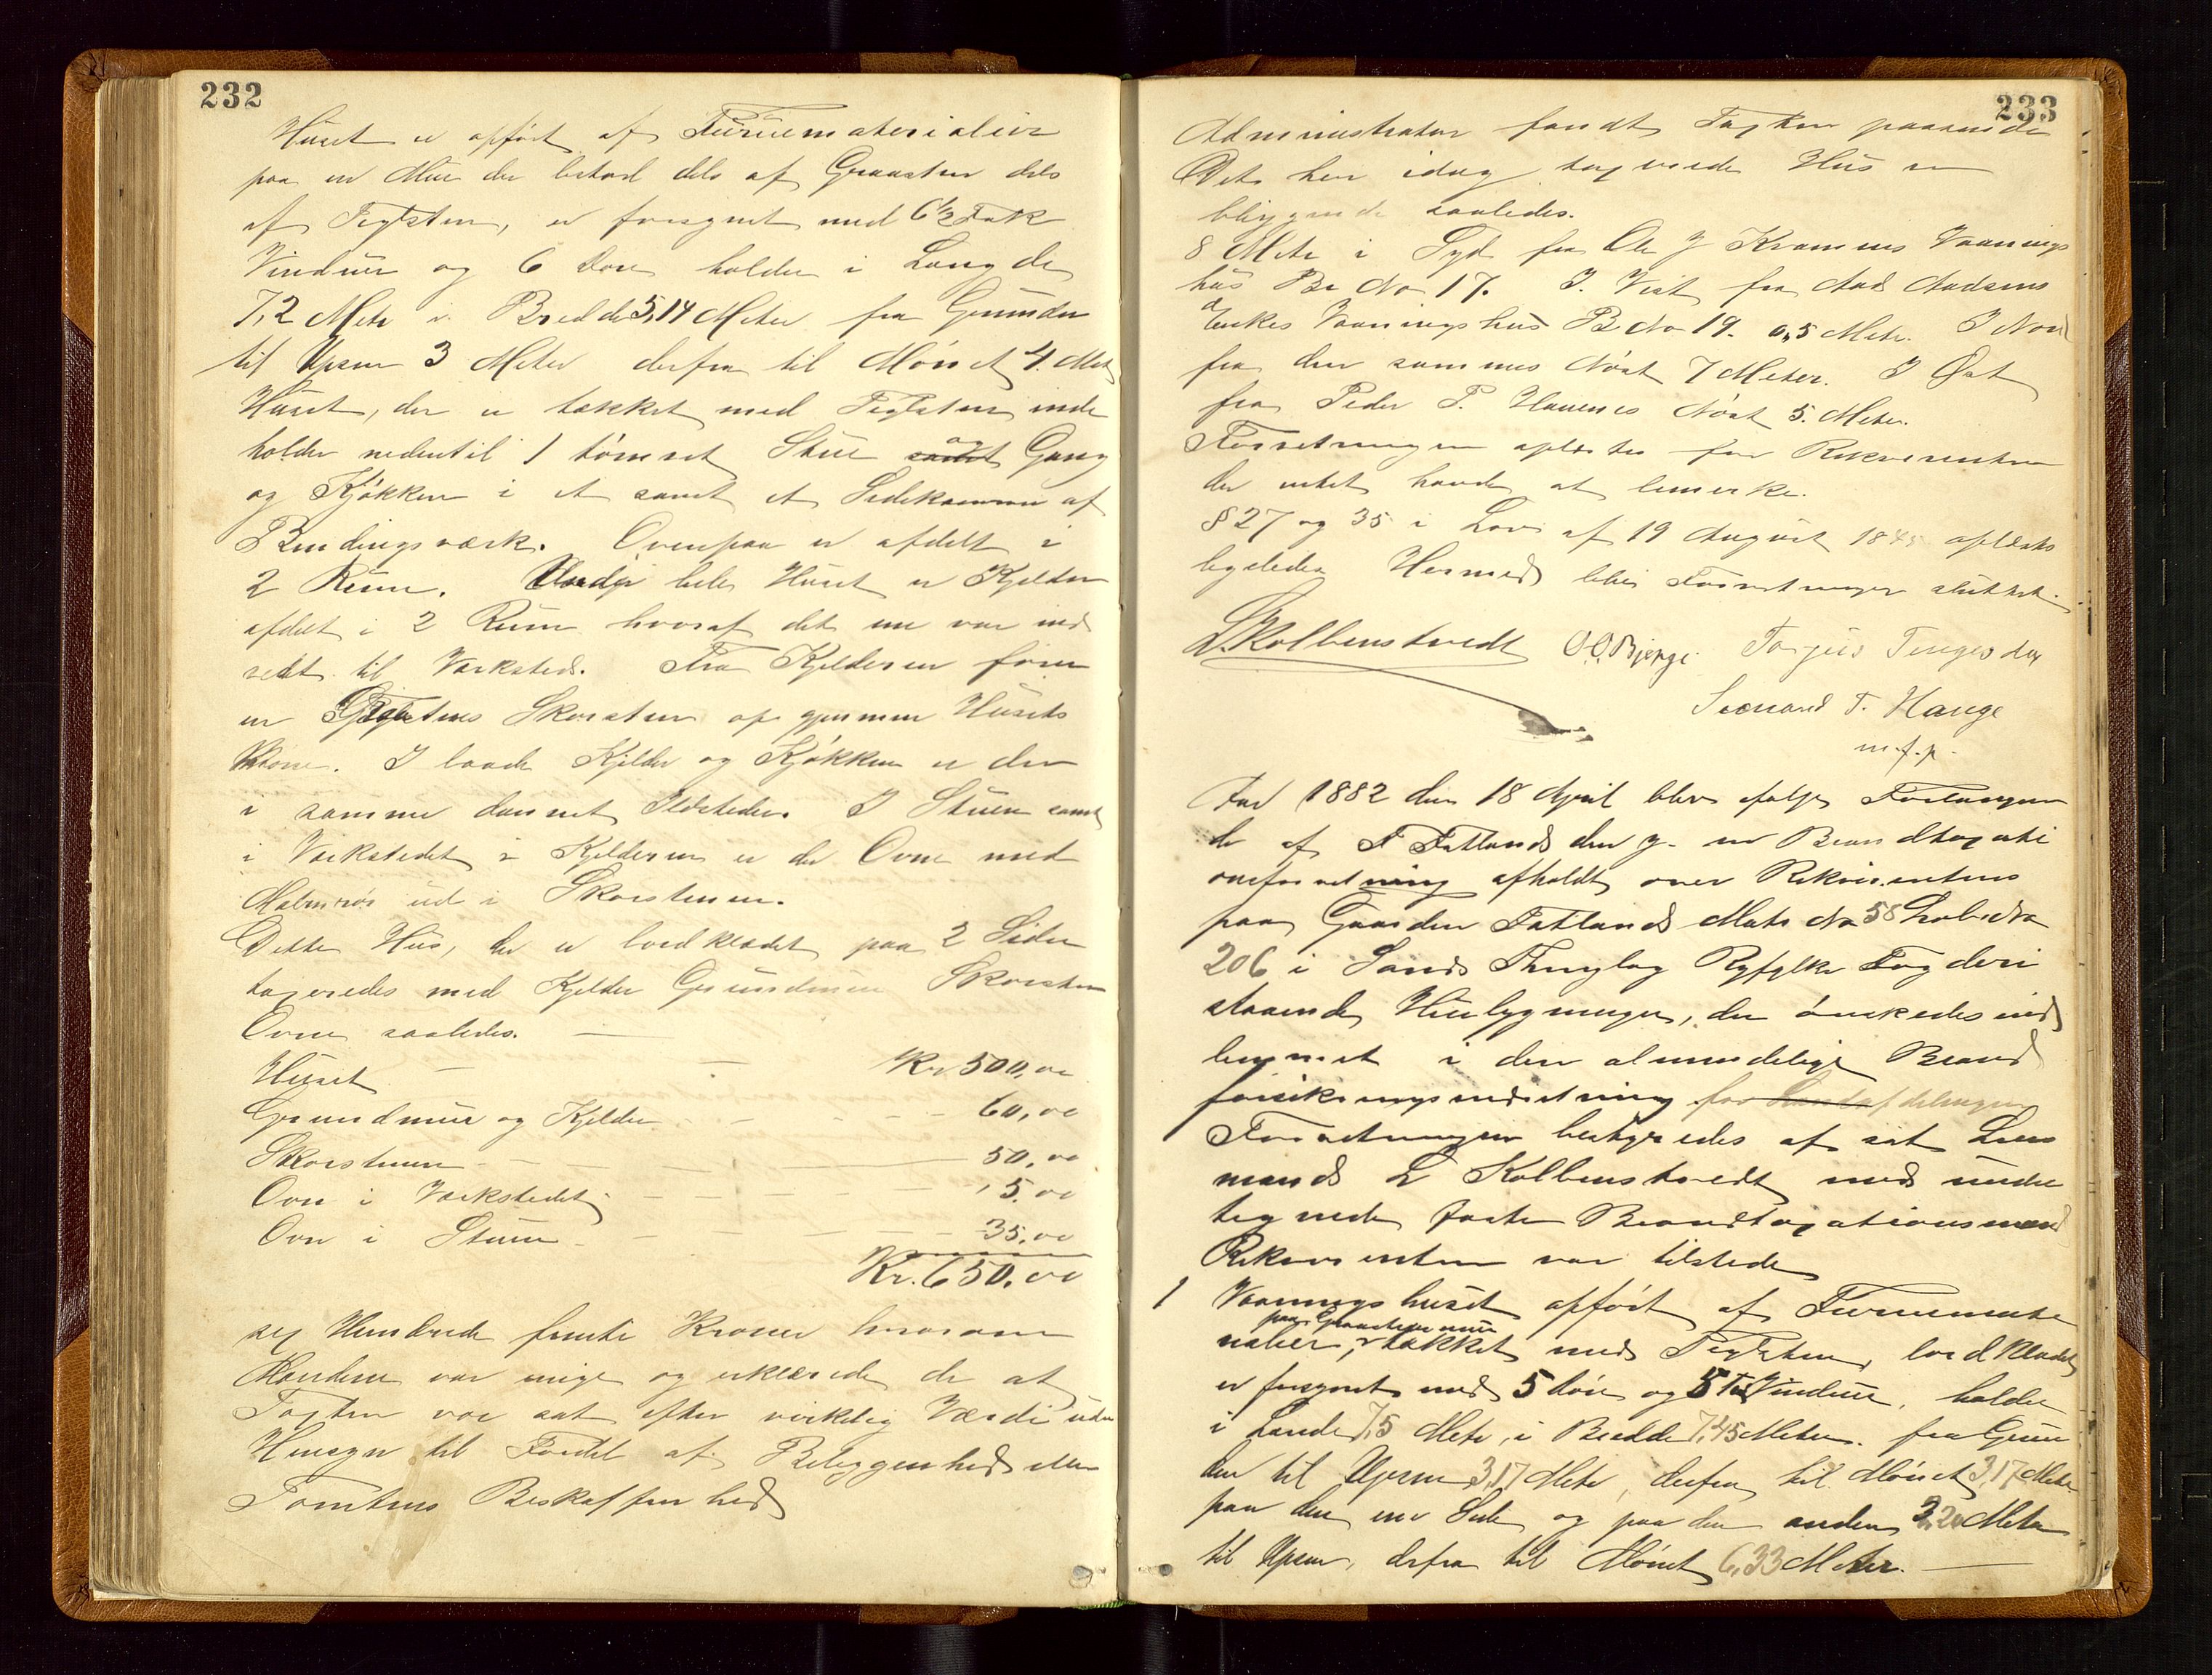 232
Huset er opført af Furuematerialier
paa en Mur der bestod dels af Graasten dels
af Teglsten, er forsynet med 6 1/2 Fak
Vinduer og 6 Døre holder i Længde
7,2 Meter i Bredde 5,14 Meter fra Grunden
til Upsen 3 Meter derfra til Mønet 4. Met
Huset, der er tækket med Teglsten inde
holder nedentil 1 tømret Stue samt og Gang
og Kjøkken i et samt et Sidekammer af
Bindingsværk. Ovenpaa er afdelt i
2 Rum. Under hele Huset er Kjelder
afdelt i 2 Rum hvoraf det ene var ind
redet til Værksted. Fra Kjelderen fører
en Teglstens Skorsten op gjennem Husets
Møne. I baade Kjelder og Kjøkken er der
i samme dannet Ildsteder. I Stuen samt
i Værkstedet i Kjelderen er der Ovne med
Malmrør ud i Skorstenen.
Dette Hus, der er bordklædt paa 2 Sider
taxeredes med Kjelder Grundmur Skorsten
Ovne saaledes.
Huset Kr 500,00
Grundmur og Kjelder 60,00
Skorstenen 50,00
Ovn i Værkstedet 5.00
Ovn i Stuen 35.00
Kr. 650.00
sex Hundrede femti Kroner hvorom
Mændene var enige og erklærede de at
Taxten var sat efter virkelig Værdi uden
Hensyn til Fordel af Beliggenhed eller
Tomtens Beskaffenhed
233
Administrator fandt Taxten passende
Det her idag taxerede Hus er
beliggende saaledes.
8 Meter i Syd fra Ole J Krammes Vaanings
hus Br No 17. I Vest fra Aad Aadsens
Enkes Vaaningshus B No 19. 0,5 Meter. I Nord
fra den sammes Nøst 7 Meter. I Øst
fra Peder P. Hauenes Nøst 5. Meter.
Forretningen oplæstes for Rekvirenten
der intet havde at bemerke.
§ 27 og 35 i Lov af 19 August 1845 oplæstes
ligeledes Hermed blev Forretningen sluttet.
L Kolbenstvedt O.O. Bjerge Torgeis
T. Hauge
m.f.p.
Aar 1882 den 18 April blev efter Forlangen
de af T Fatland den y. en Brandtaxati
onsforretning afholdt over Rekvirentens
paa Gaarden Fatland Matr No 58 Løbe No
206 i Sands Thinglag Ryfylke Fogderi
staaende Husbygninger, der ønskedes ind
lemmet i den almindelige Brand
forsikringsindretning for Landafdelingen
Forretningen bestyredes af sat Lens
mand L Kolbenstvedt med under
tegnede faste Brandtaxationsmænd
Rekvirenten var tilstede
1 Vaaningshuset opført af Furuemate
paa Graastensmur
rialier, er tækket med Teglsten, bordklædt
er forsynet med 5 Døre og 5 Vinduer, holder
i Længde 7,5 Meter, i Bredde 7,45 Meter. fra Grun
den til Upsen 3,17 Meter, derfra til Mønet 3,17 Meter
paa den ene Side og paa den anden 3,20 Meter
til Upsen, derfra til Mønet 6,33 Meter.